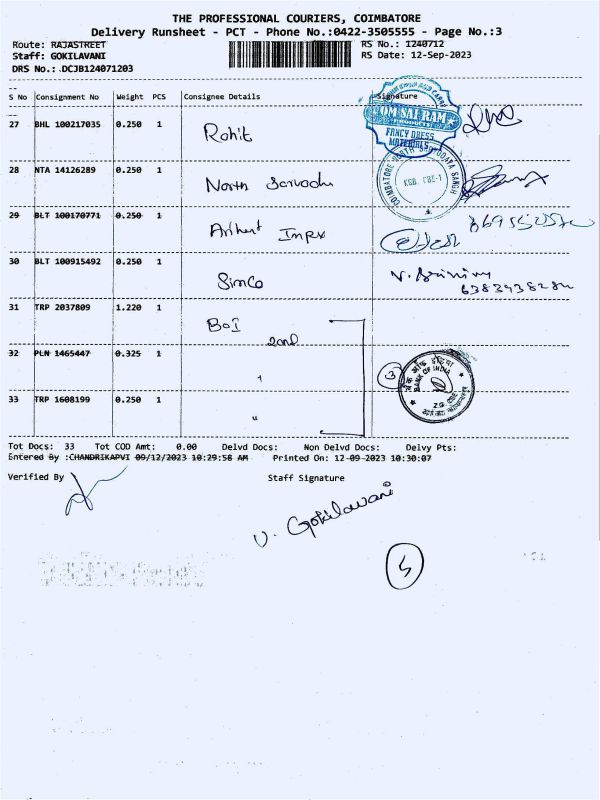 THE PROFESSIONAL COURIERS, COIMBATORE
Delivery Runsheet - PCT - Phone No.:0422-3505555 - Page No.:3
Route: RAJASTREET RS No.: 1240712
Staff: GOKILAVANI RS Date: 12-Sep-2023
DRS No.: DCJB124071203
S No Consignment No Weight PCS Consignee Details Signature
27 BHL 100217035 0.250 1 Rohit
OM SAI RAM
FANCY DRESS
MATERIALS
28 NTA 14126289 0.250 1 North
29 BLT 100170771 0.250 1 Arihant Impex
30 BLT 100915492 0.250 1 Simco
31 TRP 2037809 1.220 1 BOI
32 PLN 1465447 0.325 1
3
BANK OF INDIA
33 TRP 1608199 0.250 1 "
Tot Docs: 33 Tot COD Amt: 0.00 Delvd Docs: Non Delvd Docs: Delvy Pts:
Entered By :CHANDRIKAPVI 09/12/2023 10:29:58 AM Printed On: 12-09-2023 10:30:07
Verified By Staff Signature
V. Gokilavani